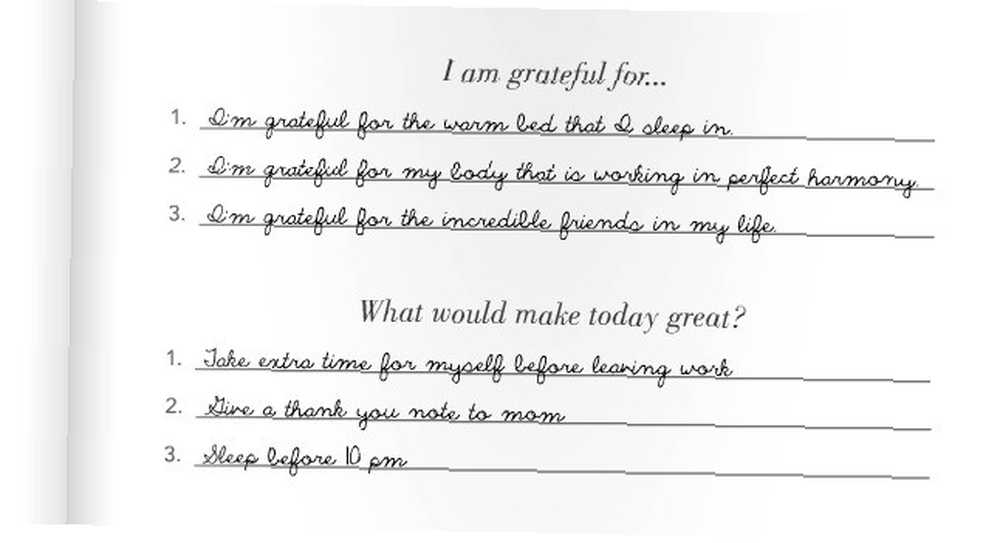 I am grateful for...
1. I'm grateful for the warm bed that I sleep in.
2. I'm grateful for my body that is working in perfect harmony.
3. I'm grateful for the incredible friends in my life.
What would make today great?
1. Take extra time for myself before leaving work
2. Give a thank you note to mom
3. Sleep before 10 pm